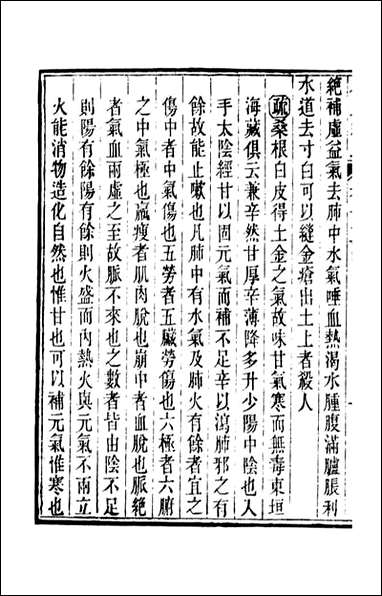 絕補虛益氣去肺中水氣唾血熱渴水腫腹滿臚脹利
水道去寸白可以縫金瘡出土上者殺人
疏桑根白皮得土金之氣故味甘氣寒而無毒東垣
海藏俱云兼辛然甘厚辛薄降多升少陽中陰也入
手太陰經甘以固元氣而補不足辛以瀉肺邪之有
餘故能止嗽也凡肺中有水氣及肺火有餘者宜之
傷中者中氣傷也五勞者五臟勞傷也六極者六腑
之中氣極也羸瘦者肌肉脫也崩中者血脫也脈絕
者氣血兩虛之至故脈不來也之數者皆由陰不足
則陽有餘陽有餘則火盛而內熱火與元氣不兩立
火能消物造化自然也惟甘也可以補元氣惟寒也